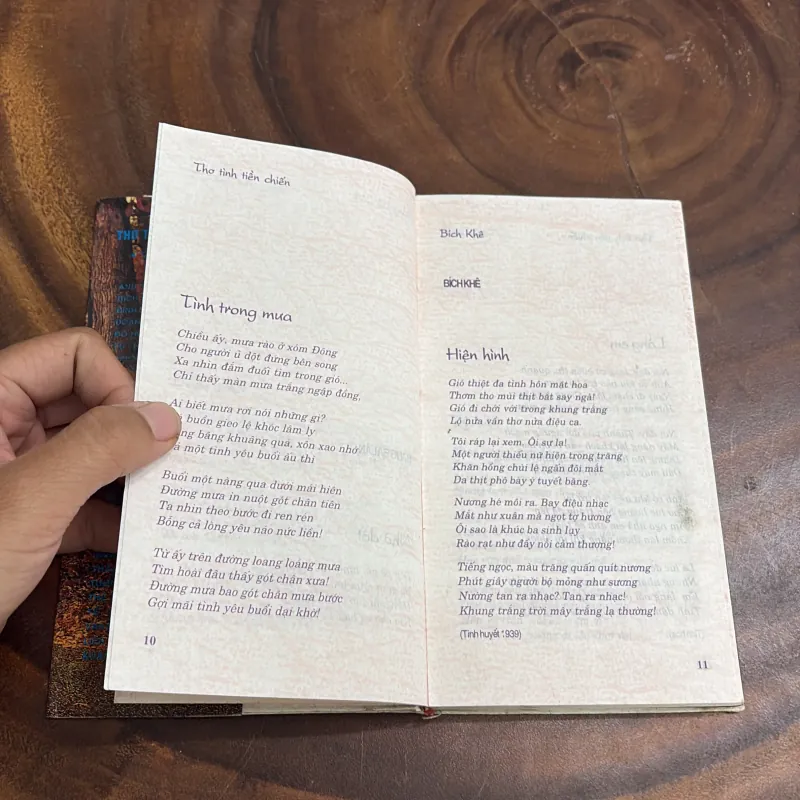 Thơ tình tiền chiến
Tình trong mưa
Chiều ấy, mưa rào ở xóm Đông
Cho người ủ dột đứng bên song
Xa nhìn đắm đuối tìm trong gió...
Chỉ thấy màn mưa trắng ngập đồng,
Ai biết mưa rơi nói những gì?
buồn gieo lệ khóc lâm ly
bâng khuâng quá, xôn xao nhớ
một tình yêu buổi ấu thì
Buổi một nàng qua dưới mái hiên
Đường mưa in nuột gót chân tiên
Ta nhìn theo bước đi ren rén
Bỗng cả lòng yêu náo nức liền!
Từ ấy trên đường loang loáng mưa
Tìm hoài đâu thấy gót chân xưa!
Đường mưa bao gót chân mưa bước
Gợi mãi tình yêu buổi dại khờ!
10
Bích Khê
BÍCH KHÊ
Hiện hình
Gió thiệt đa tình hôn mặt hoa
Thơm tho mùi thịt bắt say ngà!
Gió đi chới với trong khung trắng
Lộ nửa vần thơ nửa điệu ca.
Tôi ráp lại xem. Ôi sự lạ!
Một người thiếu nữ hiện trong trăng
Khăn hồng chùi lệ ngấn đôi mắt
Da thịt phô bày ý tuyết băng.
Nường hé môi ra. Bay điệu nhạc
Mát như xuân mà ngọt tợ hương
Ôi sao là khúc ba sinh lụy
Rào rạt như đẩy nỗi cảm thương!
Tiếng ngọc, màu trăng quấn quít nường
Phút giây người bỗng mỏng như sương
Nường tan ra nhạc? Tan ra nhạc!
Khung trắng trời mây trắng lạ thường!
(Tinh huyết 1939)
11